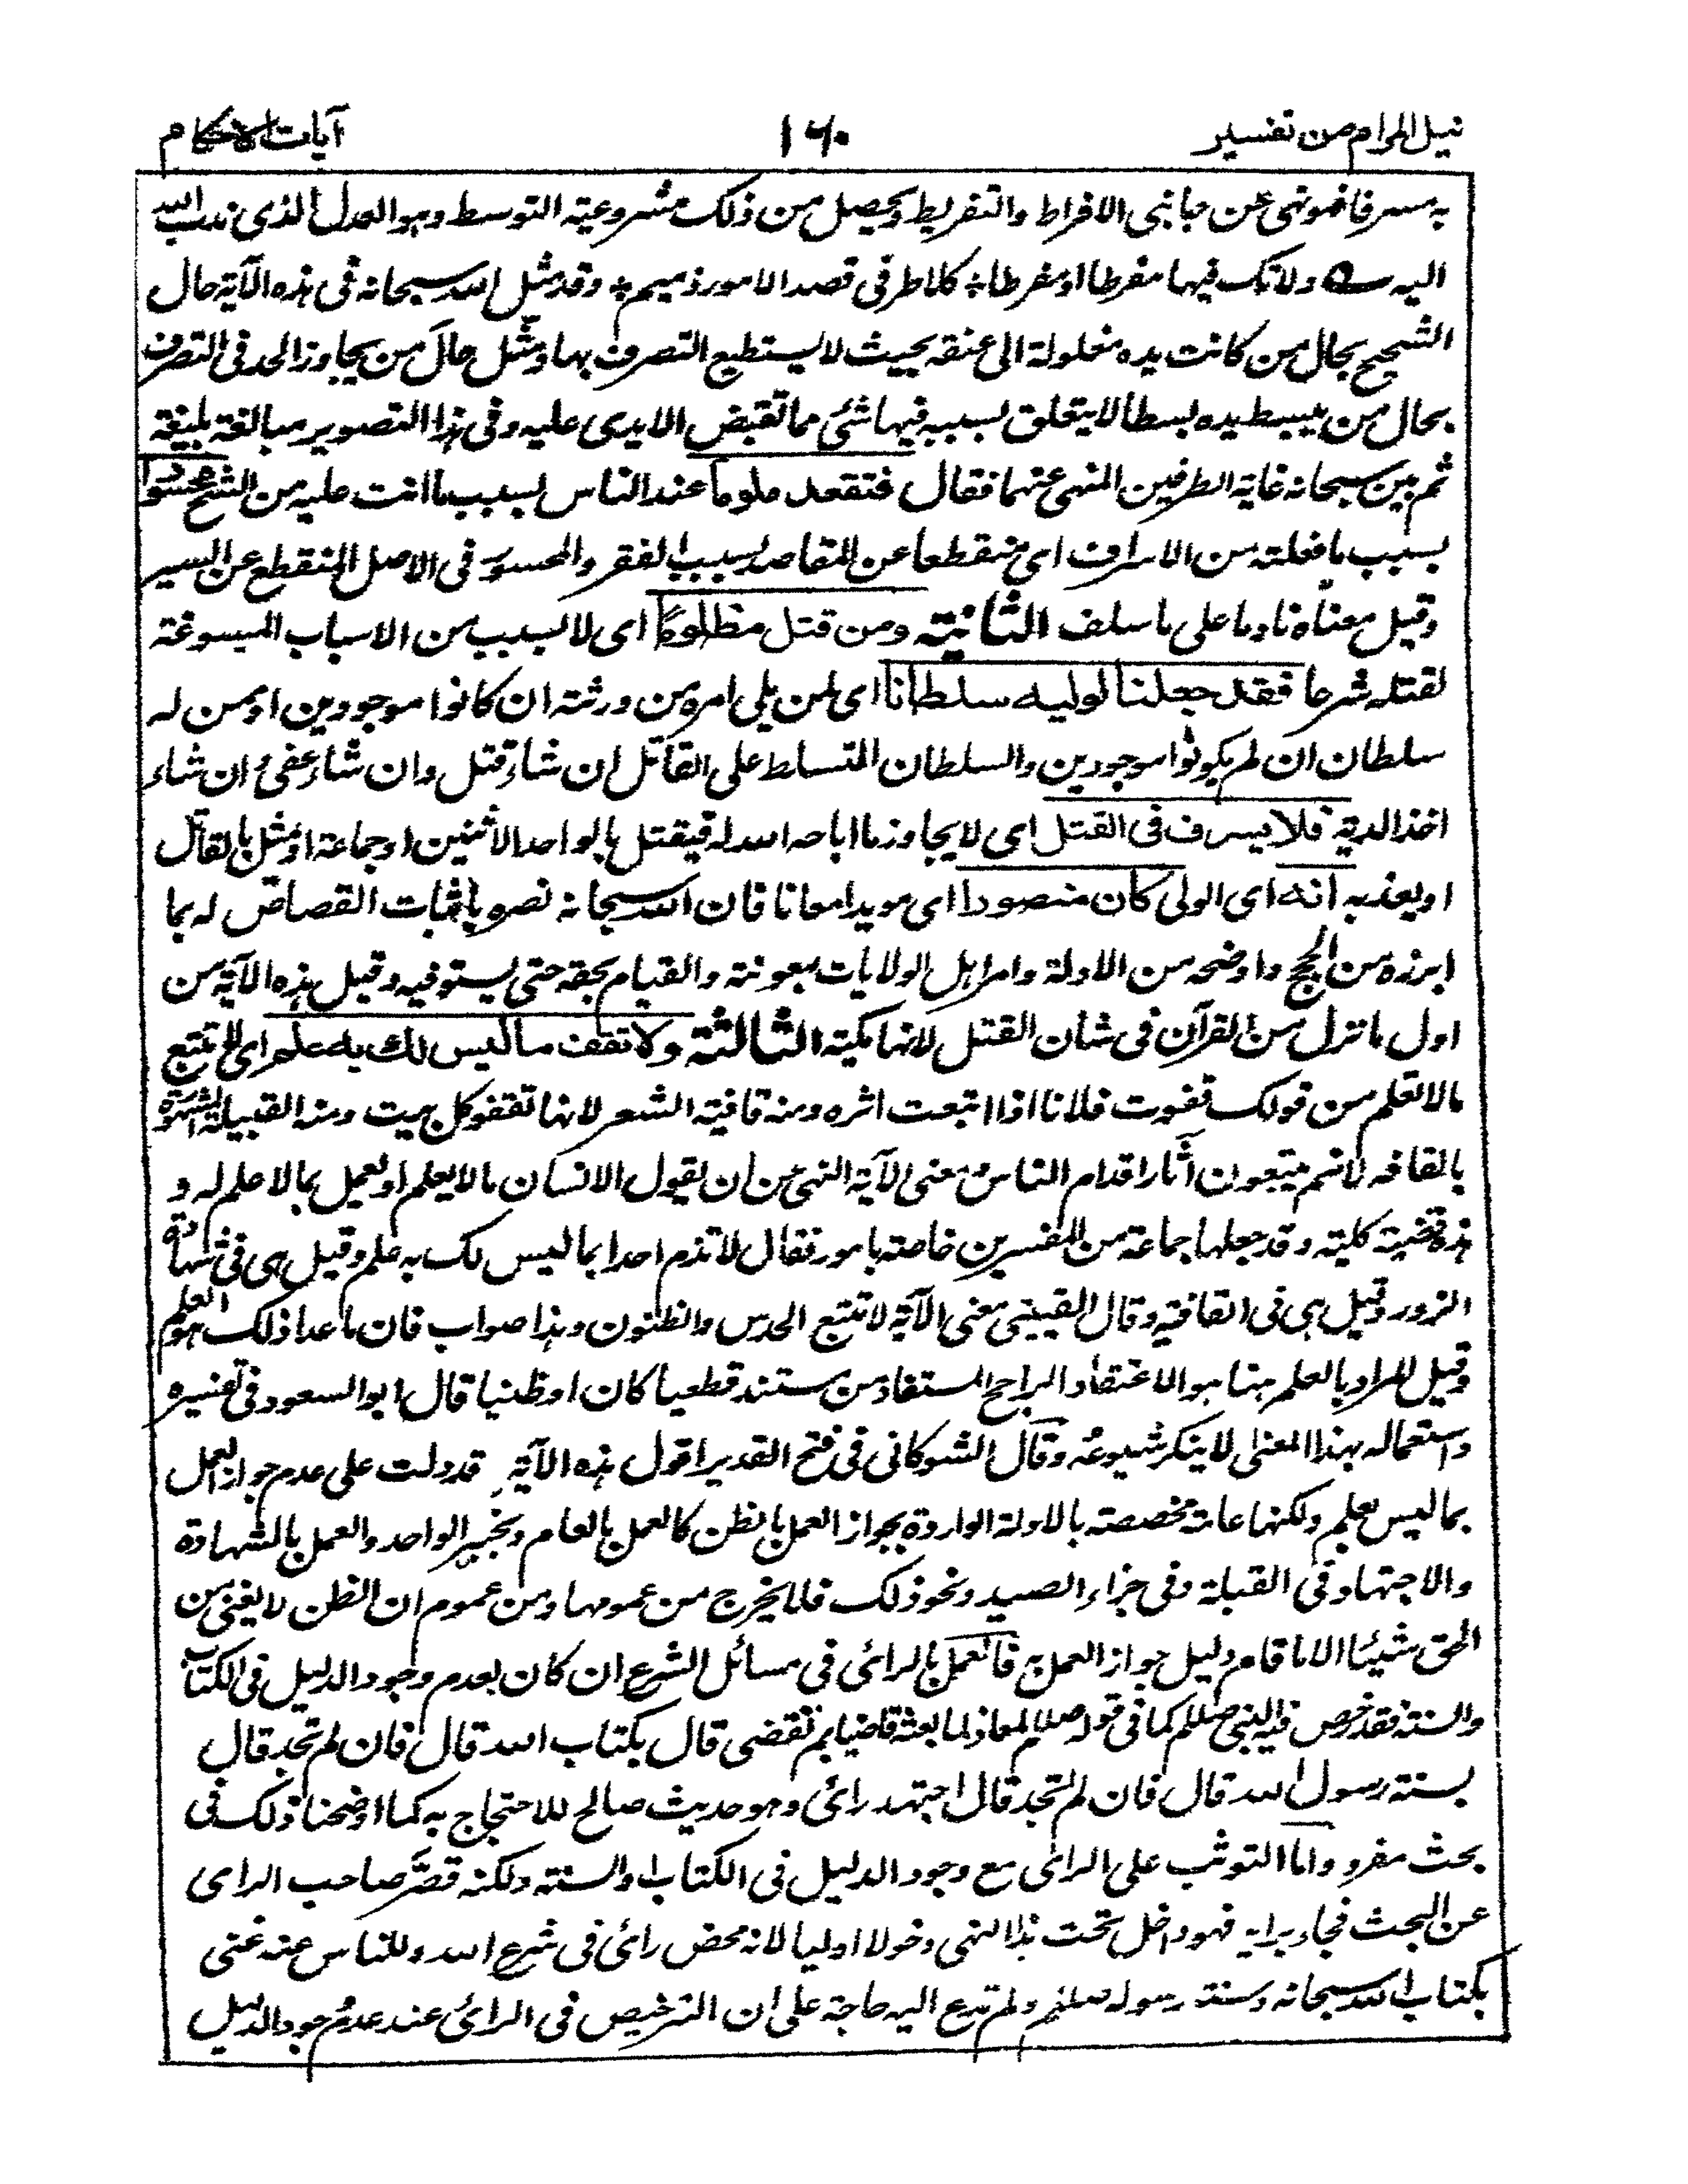 نيل المرام من تفسير
١٦٠
آيات الاحكام
به مسرفا فهو نهى عن جانبى الافراط والتفريط ويحصل من ذلك مشروعية التوسط وهو العدل الذى ندب الله
اليه ولا تك فيها مفرطا او مفرطا ❊ كلا طرفى قصد الامور ذميم ❊ وقد مثل الله سبحانه فى هذه الآية حال
الشحيح بحال من كانت يده مغلولة الى عنقه بحيث لا يستطيع التصرف بها ومثل حال من يجاوز الحد فى التصرف
بحال من يبسط يده بسطا لا يتعلق بسببه فيها شئ مما تقبض الايدى عليه وفى هذا التصوير مبالغة بليغة
ثم بين سبحانه غاية الطرفين المنهى عنهما فقال فتقعد ملوما عند الناس بسبب ما انت عليه من الشح محسورا
بسبب ما فعلته من الاسراف اى منقطعا عن المقاصد بسبب الفقر والمحسور فى الاصل المنقطع عن السير
وقيل معناه نادما على ما سلف الثانية ومن قتل مظلوما اى لا بسبب من الاسباب المسوغة
لقتله شرعا فقد جعلنا لوليه سلطانا اى لمن يلى امره من ورثته ان كانوا موجودين او ممن له
سلطان ان لم يكونوا موجودين والسلطان التسلط على القاتل ان شاء قتل وان شاء عفى وان شاء
اخذ الدية فلا يسرف فى القتل اى لا يجاوز ما اباحه الله له فيقتل بالواحد الاثنين او جماعة او يمثل بالقاتل
او يعذبه انه اى الولى كان منصورا اى مويدا معانا فان الله سبحانه نصره باثبات القصاص له بما
ابرزه من الحجج واوضحه من الادلة وامر اهل الولايات بمعونته والقيام بحقه حتى يستوفيه وقيل هذه الآية من
اول ما نزل من القرآن فى شان القتل لانها مكية الثالثة ولا تقف ما ليس لك به علم اى لا تتبع
ما لا تعلم من قولك قفوت فلانا اذا اتبعت اثره ومنه قافية الشعر لانها تقفو كل بيت ومنه القبيلة المشهورة
بالقافه لانهم يتبعون آثار اقدام الناس ومعنى الآية النهى عن ان يقول الانسان ما لا يعلم او يعمل بما لا علم له و
هذه قضية كلية وقد جعلها جماعة من المفسرين خاصة بامور فقال لا تذم احدا بما ليس لك به علم وقيل هى فى شهادة
الزور وقيل هى فى القافية وقال القتيبى معنى الآية لا تتبع الحدس والظنون وهذا صواب فان ما عدا ذلك هو العلم
وقيل المراد بالعلم هنا هو الاعتقاد الراجح المستفاد من مستند قطعيا كان او ظنيا قال ابو السعود فى تفسيره
واستعماله بهذا المعنى لا ينكر شيوعه وقال الشوكانى فى فتح القدير اقول هذه الآية قد دلت على عدم جواز العمل
بما ليس بعلم ولكنها عامة مخصصة بالادلة الواردة بجواز العمل بالظن كالعمل بالعام وبخبر الواحد والعمل بالشهادة
والاجتهاد فى القبلة وفى جزاء الصيد ونحو ذلك فلا يخرج من عمومها ومن عموم ان الظن لا يغنى من
الحق شيئا الا ما قام دليل جواز العمل به فالعمل بالرائى فى مسائل الشرع ان كان بعدم وجود الدليل فى الكتاب
والسنة فقد رخص فيه النبى صلعم كما فى قوله صلعم لمعاذ لما بعثه قاضيا بم تقضى قال بكتاب الله قال فان لم تجد قال
بسنة رسول الله قال فان لم تجد قال اجتهد رائى وهو حديث صالح للاحتجاج به كما اوضحنا ذلك فى
بحث مفرد واما التوثب على الرائى مع وجود الدليل فى الكتاب او السنة ولكنه قصَّر صاحب الراى
عن البحث فجاء برايه فهو داخل تحت هذا النهى دخولا اوليا لانه محض رائى فى شرع الله وللناس عنه غنى
بكتاب الله سبحانه وسنة رسوله صلعم ولم تدع اليه حاجة على ان الترخيص فى الرائى عند عدم وجود الدليل